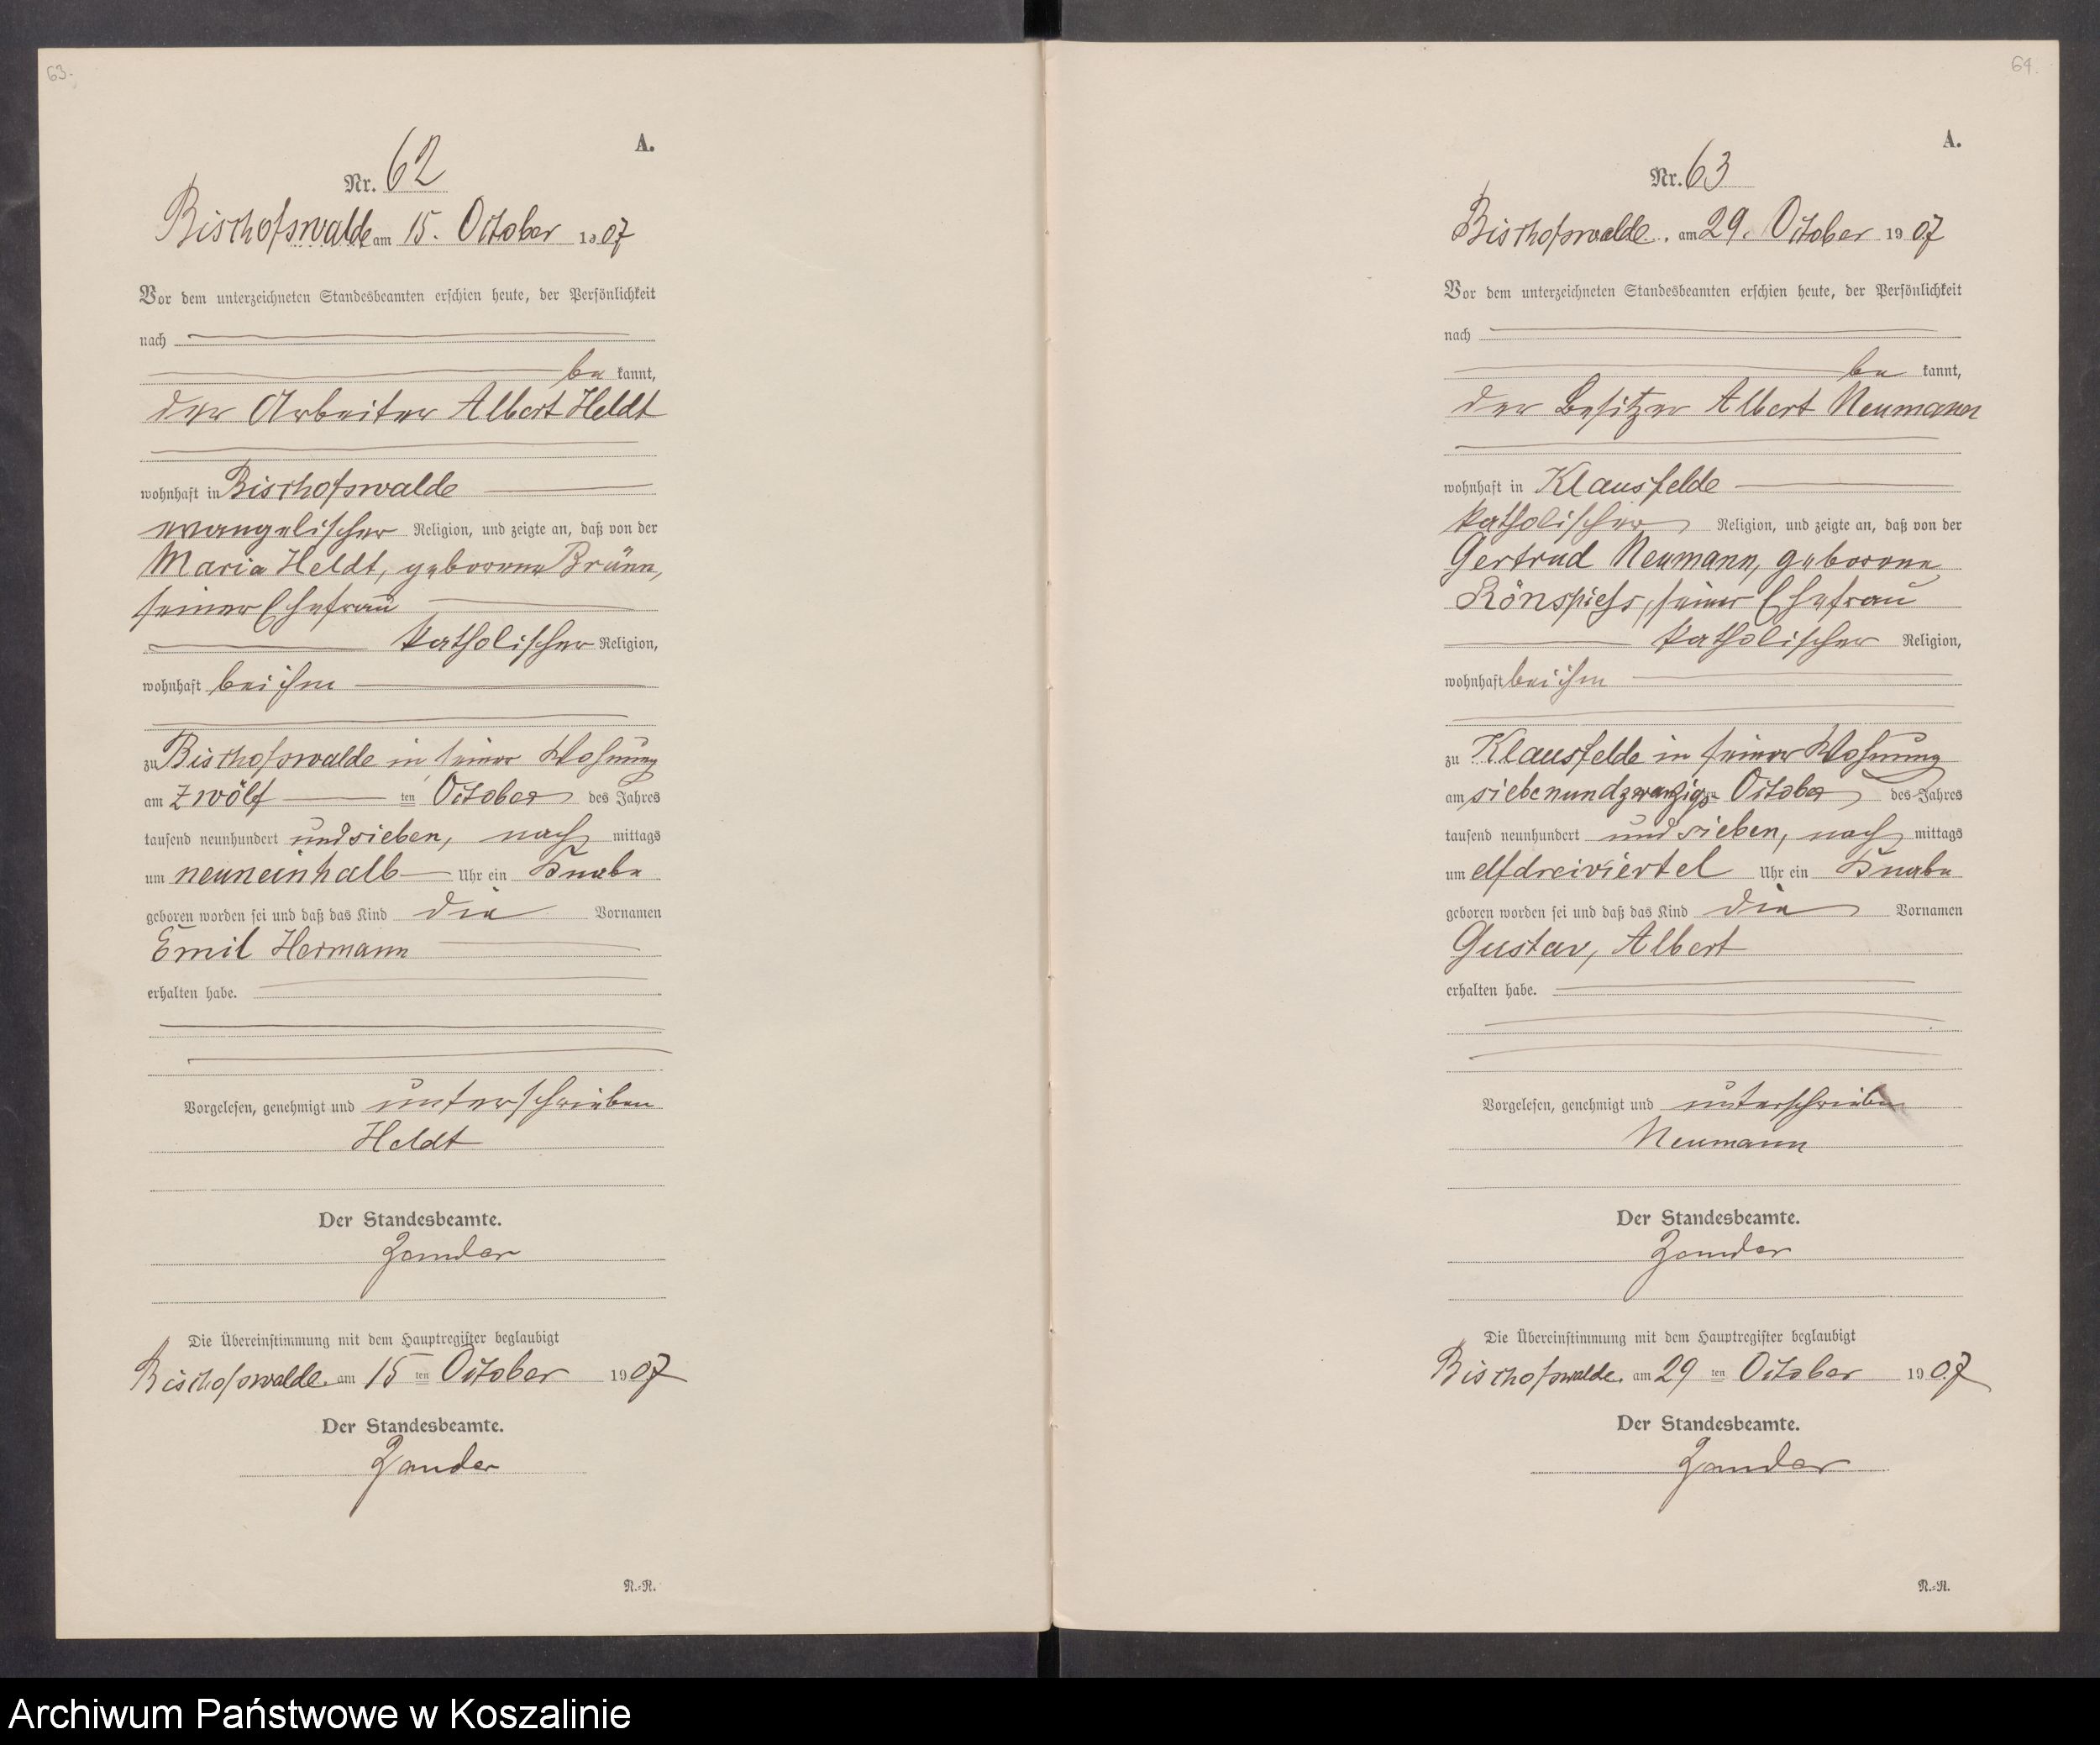 63.
A.
Nr. 62
Bischofswalde am 15. October 1907
Vor dem unterzeichneten Standesbeamten erschien heute, der Persönlichkeit
nach
be kannt,
der Arbeiter Albert Heldt
wohnhaft in Bischofswalde
evangelischer Religion, und zeigte an, daß von der
Maria Heldt, geborene Brünn,
seiner Ehefrau
katholischer Religion,
wohnhaft bei ihm
zu Bischofswalde in seiner Wohnung
am zwölf ten October des Jahres
tausend neunhundert und sieben, nach mittags
um neuneinhalb Uhr ein Knabe
geboren worden sei und daß das Kind die Vornamen
Emil Hermann
erhalten habe.
Vorgelesen, genehmigt und unterschrieben
Heldt
Der Standesbeamte.
Zander
Die Übereinstimmung mit dem Hauptregister beglaubigt
Bischofswalde, am 15 ten October 1907
Der Standesbeamte.
Zander
N.-R.
64.
A.
Nr. 63
Bischofswalde, am 29. October 1907
Vor dem unterzeichneten Standesbeamten erschien heute, der Persönlichkeit
nach
be kannt,
der Besitzer Albert Neumann
wohnhaft in Klausfelde
katholischer Religion, und zeigte an, daß von der
Gertrud Neumann, geborene
Rönspiess, seiner Ehefrau
katholischer Religion,
wohnhaft bei ihm
zu Klausfelde in seiner Wohnung
am siebenundzwanzigsten October des Jahres
tausend neunhundert und sieben, nach mittags
um elfdreiviertel Uhr ein Knabe
geboren worden sei und daß das Kind die Vornamen
Gustav, Albert
erhalten habe.
Vorgelesen, genehmigt und unterschrieben
Neumann
Der Standesbeamte.
Zander
Die Übereinstimmung mit dem Hauptregister beglaubigt
Bischofswalde, am 29 ten October 1907
Der Standesbeamte.
Zander
N.-R.
Archiwum Państwowe w Koszalinie